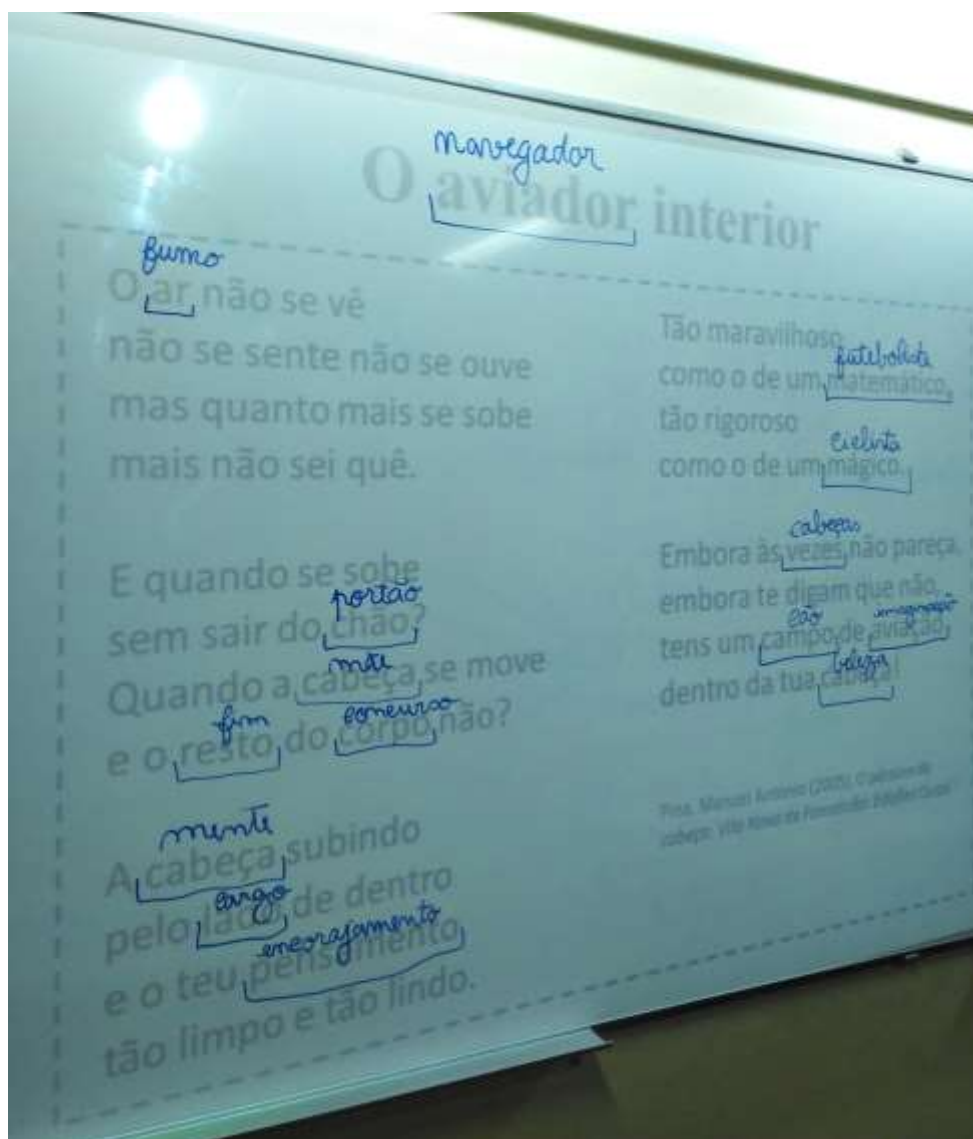 navegador
O aviador interior
fumo
O ar não se vê
não se sente não se ouve
mas quanto mais se sobe
mais não sei quê.
E quando se sobe
portão
sem sair do chão?
mãe
Quando a cabeça se move
fim concurso
e o resto do corpo não?
mente
A cabeça subindo
cargo
pelo lado de dentro
encorajamento
e o teu pensamento
tão limpo e tão lindo.
Tão maravilhoso
futebolista
como o de um matemático,
tão rigoroso
ciclista
como o de um mágico.
cabeças
Embora às vezes não pareça,
embora te digam que não,
cão imaginação
tens um campo de aviação
beleza
dentro da tua cabeça!
Pina, Manuel António (2005). O pássaro da
cabeça. Vila Nova de Famalicão: Edições Quasi